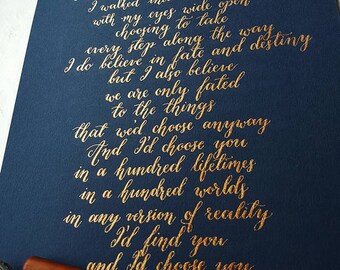 I walked into
with my eyes wide open
choosing to take
every step along the way
I do believe in fate and destiny
but I also believe
we are only fated
to the things
that we'd choose anyway
And I'd choose you
in a hundred lifetimes
in a hundred worlds
in any version of reality
I'd find you
and I'd choose you